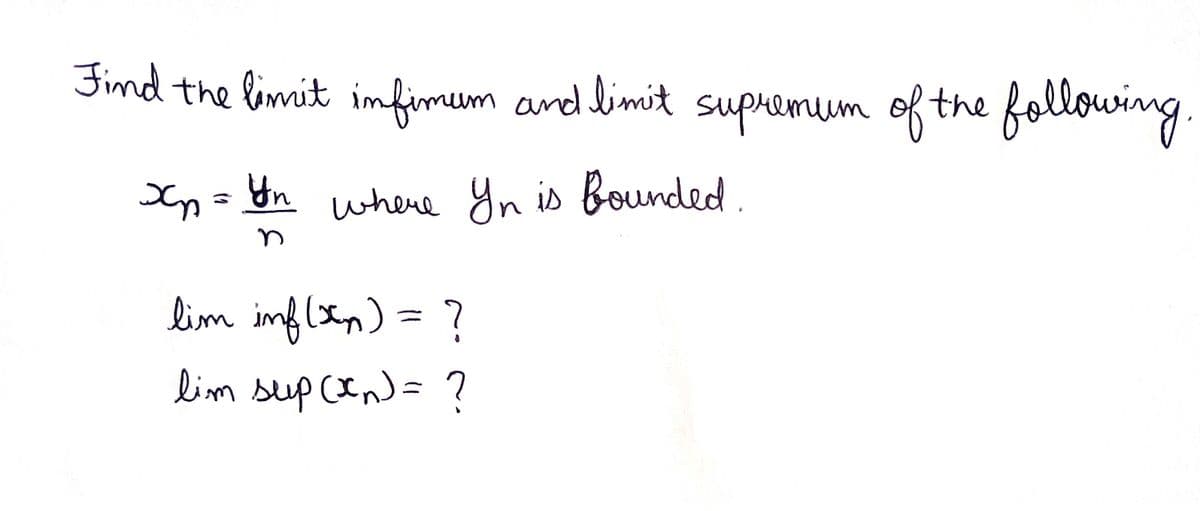 Find the limit infimum and limit supremum of the following.
xn = yn/n where yn is Bounded.
lim inf(xn) = ?
lim sup(xn) = ?